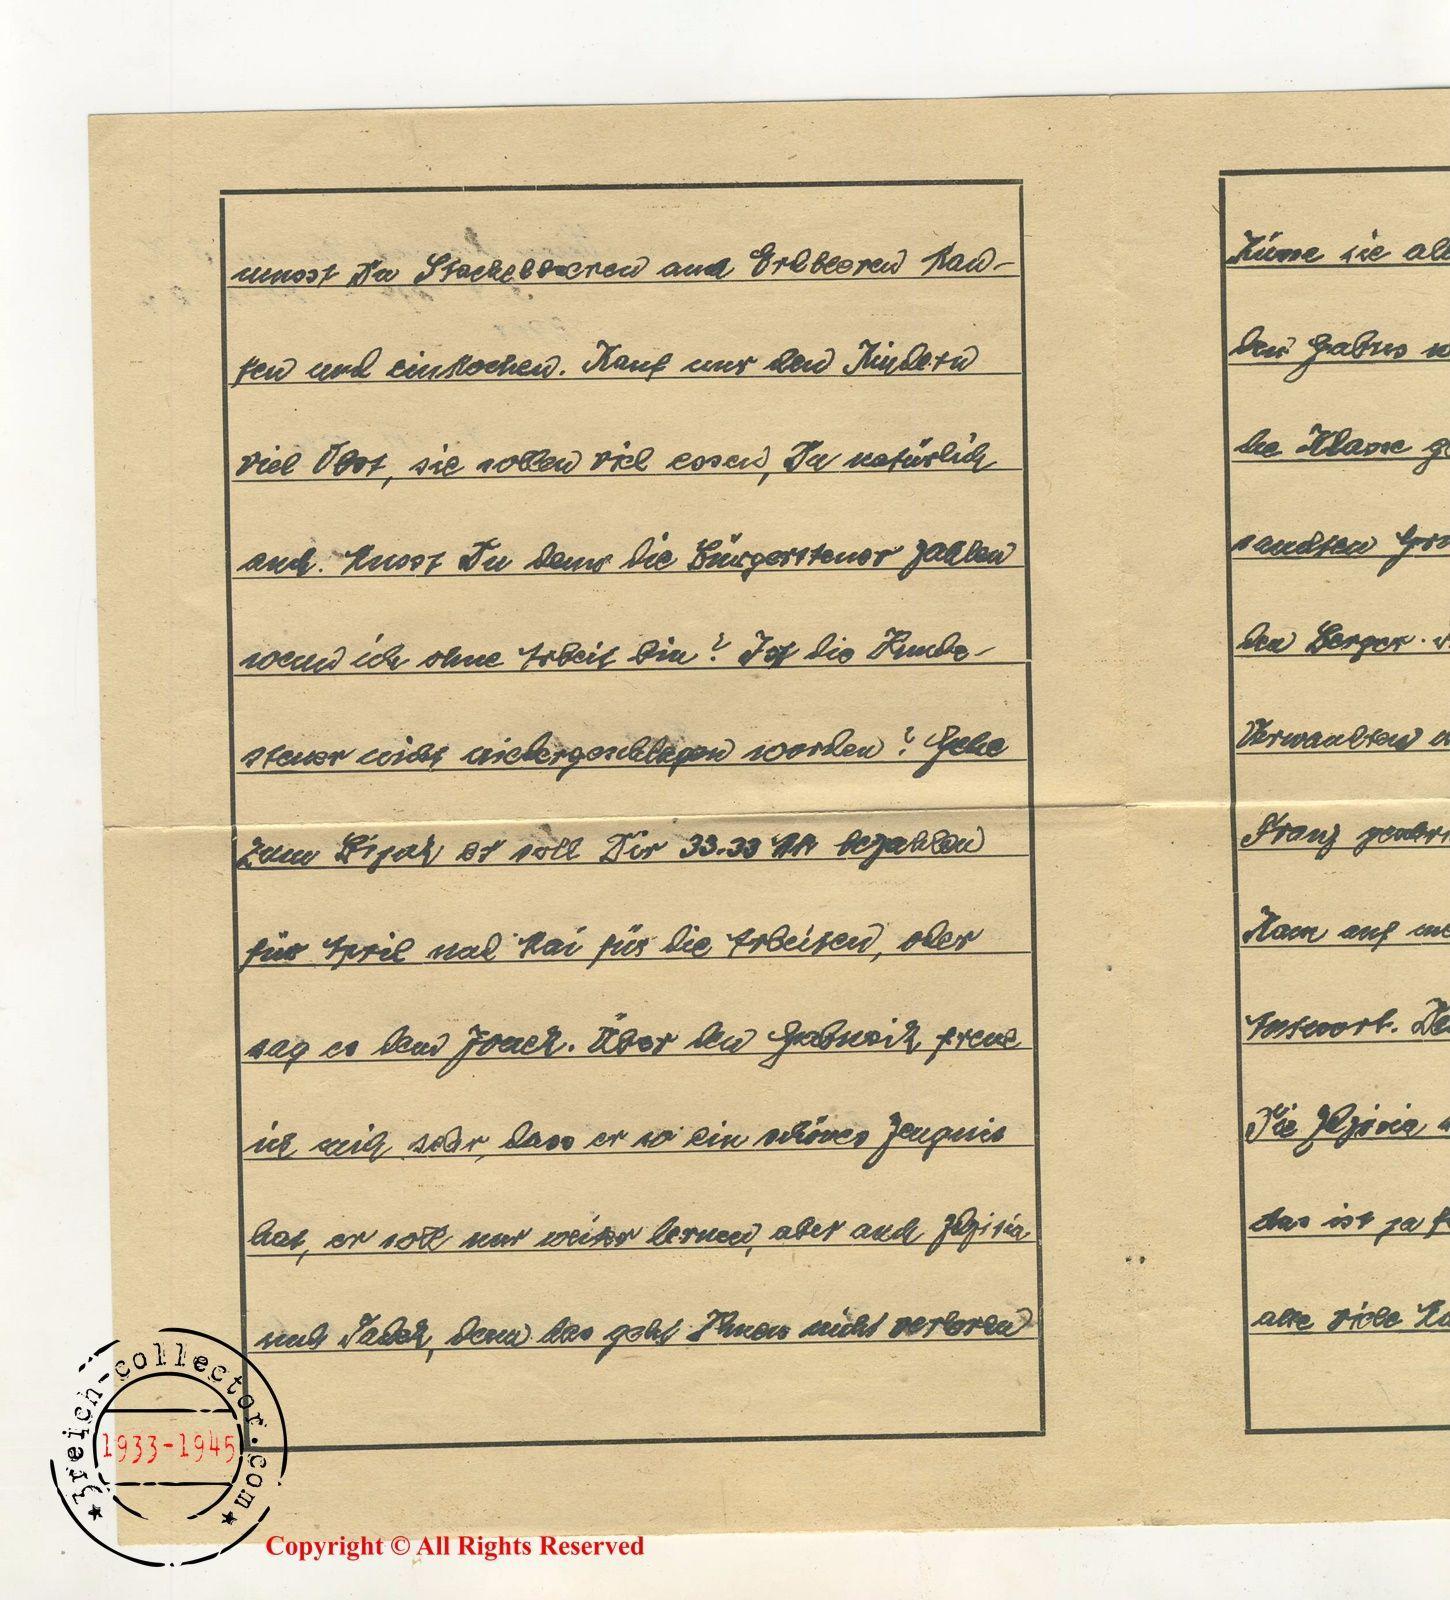 musst Du Stachelbeeren und Erdbeeren kau-
fen und einkochen. Kauf nur den Kindern
viel Obst, sie sollen viel essen, Du natürlich
auch. Musst Du denn die Bürgersteuer zahlen
wenn ich ohne Arbeit bin? Ist die Hunde-
steuer nicht niedergeschlagen worden? Gehe
zum er soll Dir 33.33 RM bezahlen
für April und Mai für die Arbeiten, oder
sag es dem Joach. Über den freue
ich mich sehr, dass er so ein schönes Zeugnis
hat, er soll nur weiter lernen, aber auch
und Tadek, denn das geht Ihnen nicht verloren
Küsse sie all
den Gabus
die Klasse
sandten
den Berger.
Verwandten
Franz
Kam auf me
Antwort.
Die
das ist ja
alte viele
3reich-collector.com
1933-1945
Copyright © All Rights Reserved